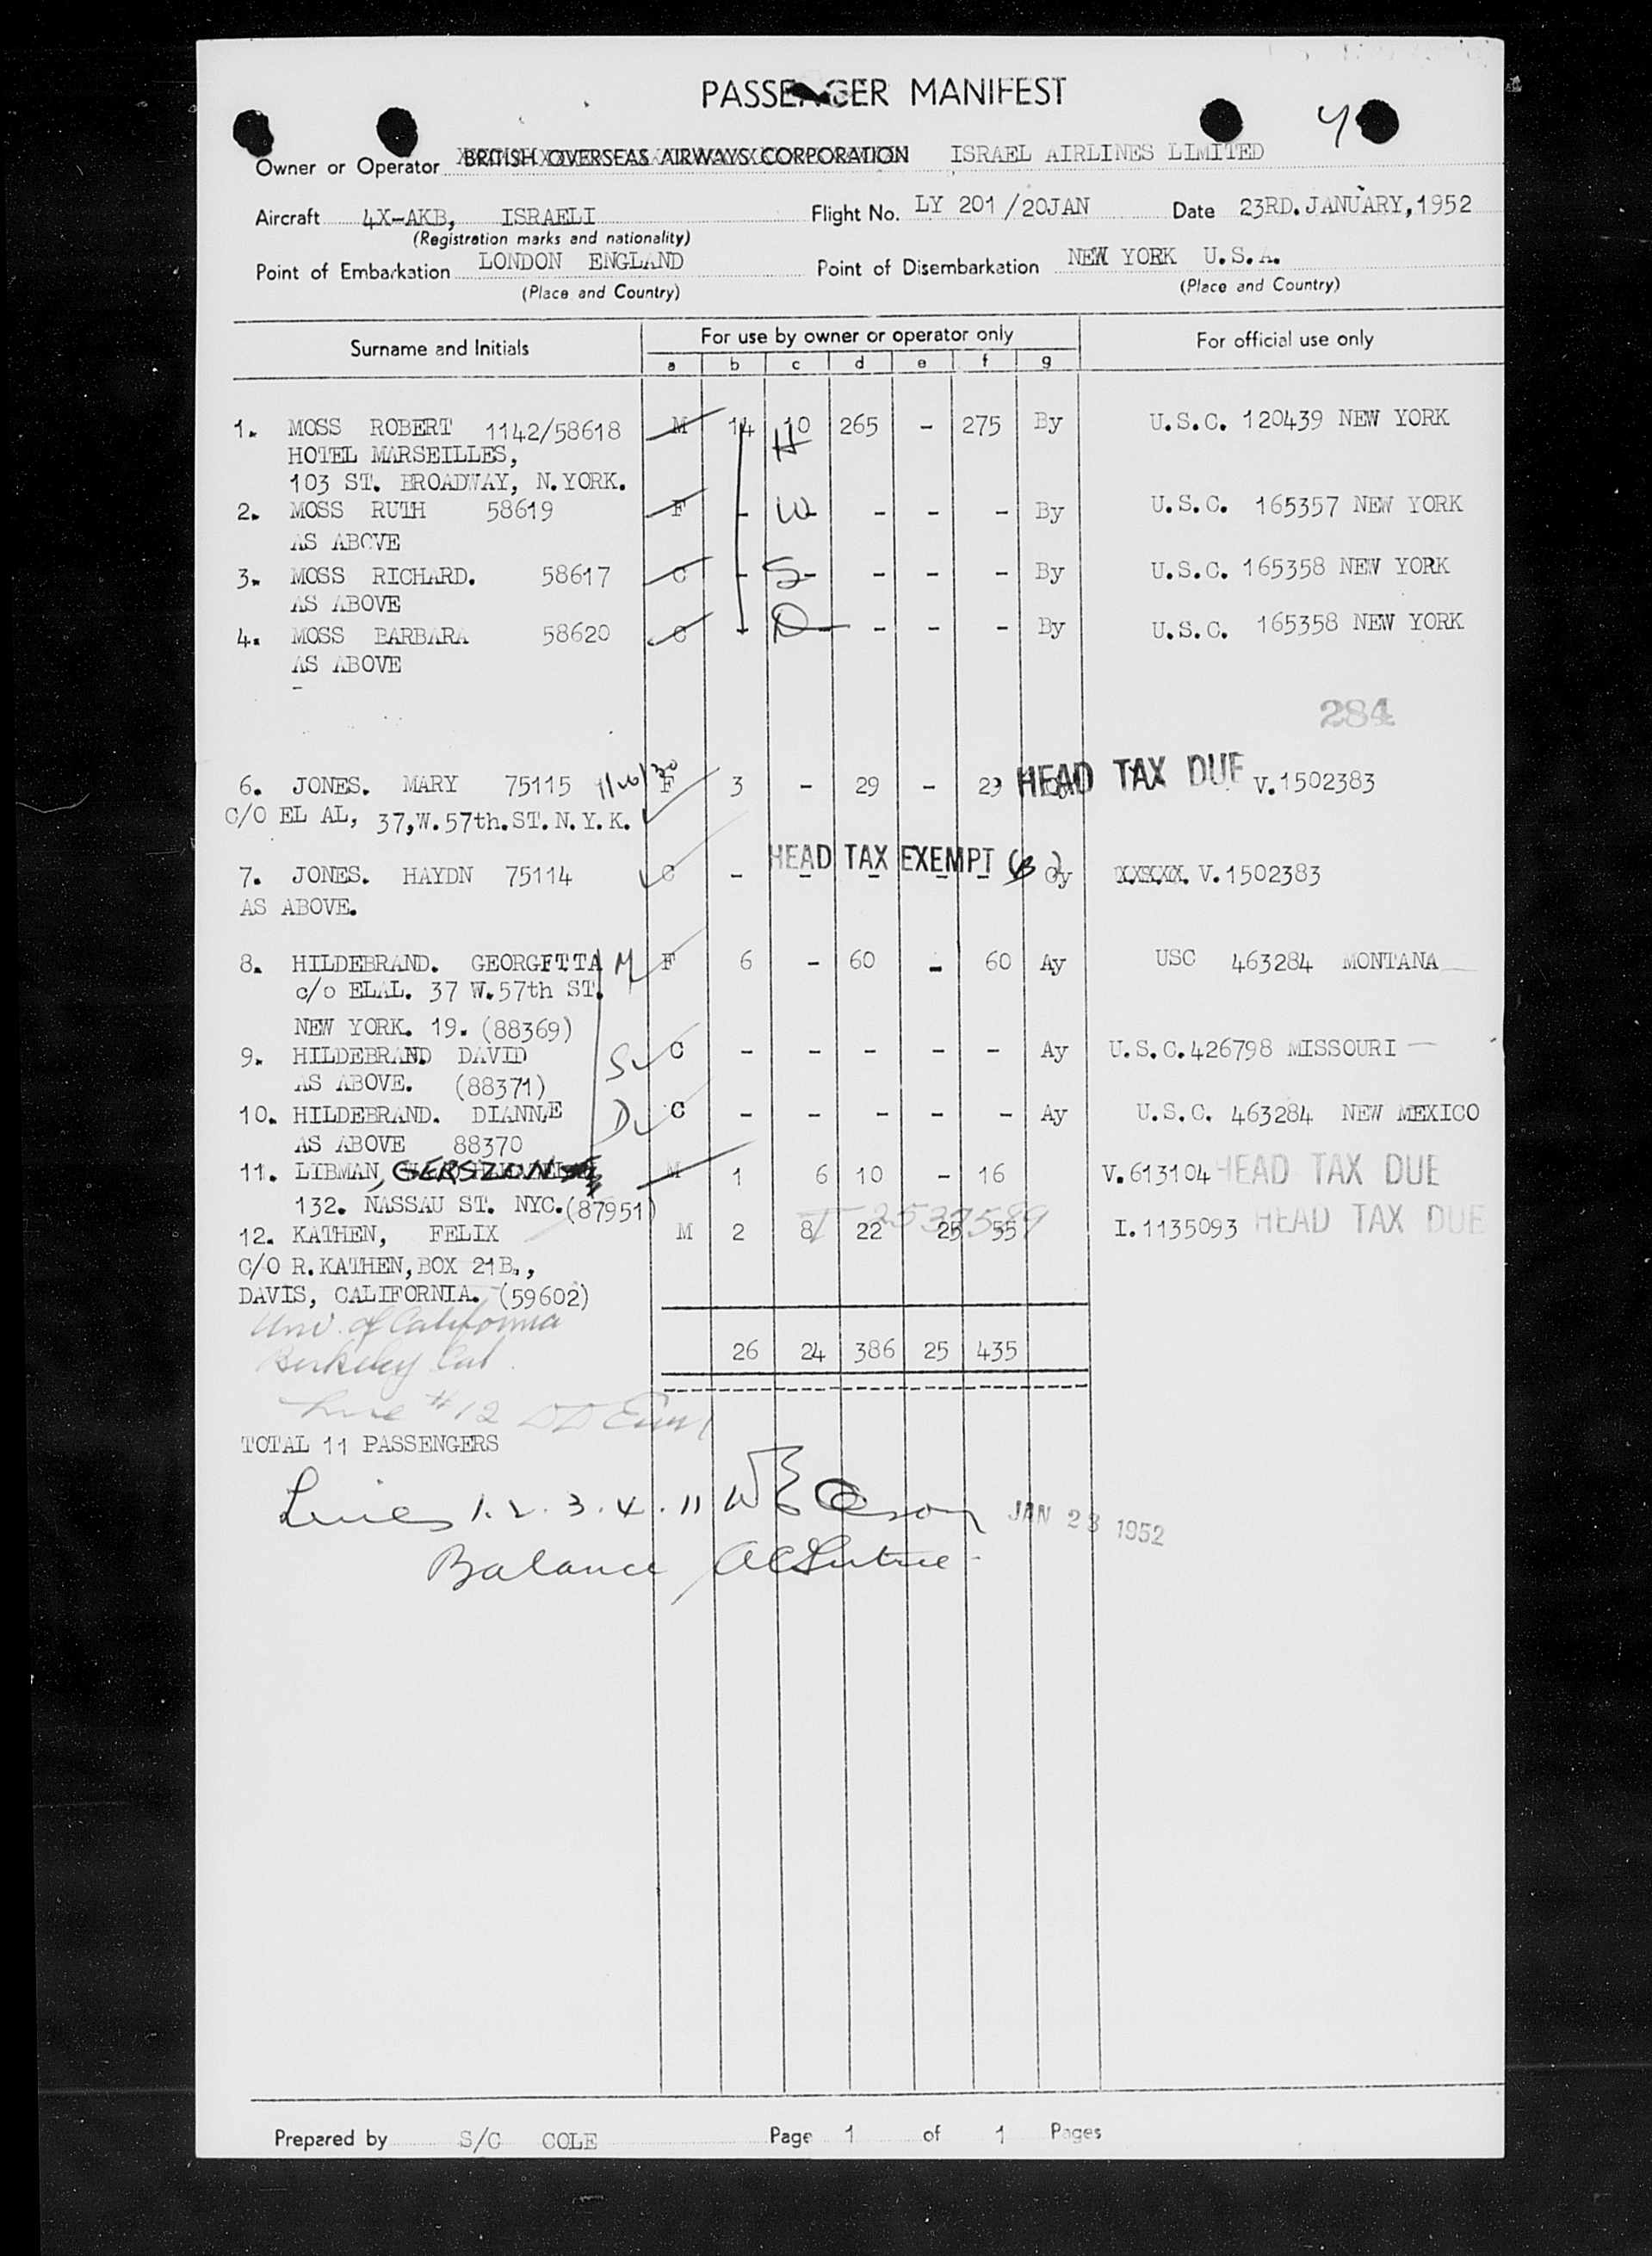 PASSENGER MANIFEST
4
Owner or Operator BRITISH OVERSEAS AIRWAYS CORPORATION ISRAEL AIRLINES LIMITED
Aircraft 4X-AKB, ISRAELI Flight No. LY 201/20JAN Date 23RD.JANUARY,1952
(Registration marks and nationality)
Point of Embarkation LONDON ENGLAND Point of Disembarkation NEW YORK U.S.A.
(Place and Country) (Place and Country)
Surname and Initials For use by owner or operator only For official use only
a b c d e f g
1. MOSS ROBERT 1142/58618 M 14 10 265 - 275 By U.S.C. 120439 NEW YORK
HOTEL MARSEILLES, H
103 ST. BROADWAY, N.YORK.
2. MOSS RUTH 58619 F - W - - - By U.S.C. 165357 NEW YORK
AS ABOVE
3. MOSS RICHARD. 58617 C - S - - - By U.S.C. 165358 NEW YORK
AS ABOVE
4. MOSS BARBARA 58620 C - D - - - By U.S.C. 165358 NEW YORK
AS ABOVE
-
284
6. JONES. MARY 75115 F 3 - 29 - 29 HEAD TAX DUE V.1502383
C/O EL AL, 37,W.57th.ST.N.Y.K.
HEAD TAX EXEMPT
7. JONES. HAYDN 75114 C - - - - - Oy XXXXX. V.1502383
AS ABOVE.
8. HILDEBRAND. GEORGETTA M F 6 - 60 - 60 Ay USC 463284 MONTANA
c/o ELAL. 37 W.57th ST.
NEW YORK. 19. (88369)
9. HILDEBRAND DAVID S C - - - - - Ay U.S.C.426798 MISSOURI
AS ABOVE. (88371)
10. HILDEBRAND. DIANNE D C - - - - - Ay U.S.C. 463284 NEW MEXICO
AS ABOVE 88370
11. LIBMAN, GERSZON M 1 6 10 - 16 V.613104 HEAD TAX DUE
132. NASSAU ST. NYC.(87951)
12. KATHEN, FELIX M 2 8 22 25 55 I.1135093 HEAD TAX DUE
C/O R.KATHEN,BOX 21B.,
DAVIS, CALIFORNIA. (59602)
Univ. of California
Berkeley Cal.
26 24 386 25 435
Line #12
TOTAL 11 PASSENGERS
Lines 1. 2. 3. 4. 11
JAN 23 1952
Balance
Prepared by S/C COLE Page 1 of 1 Pages